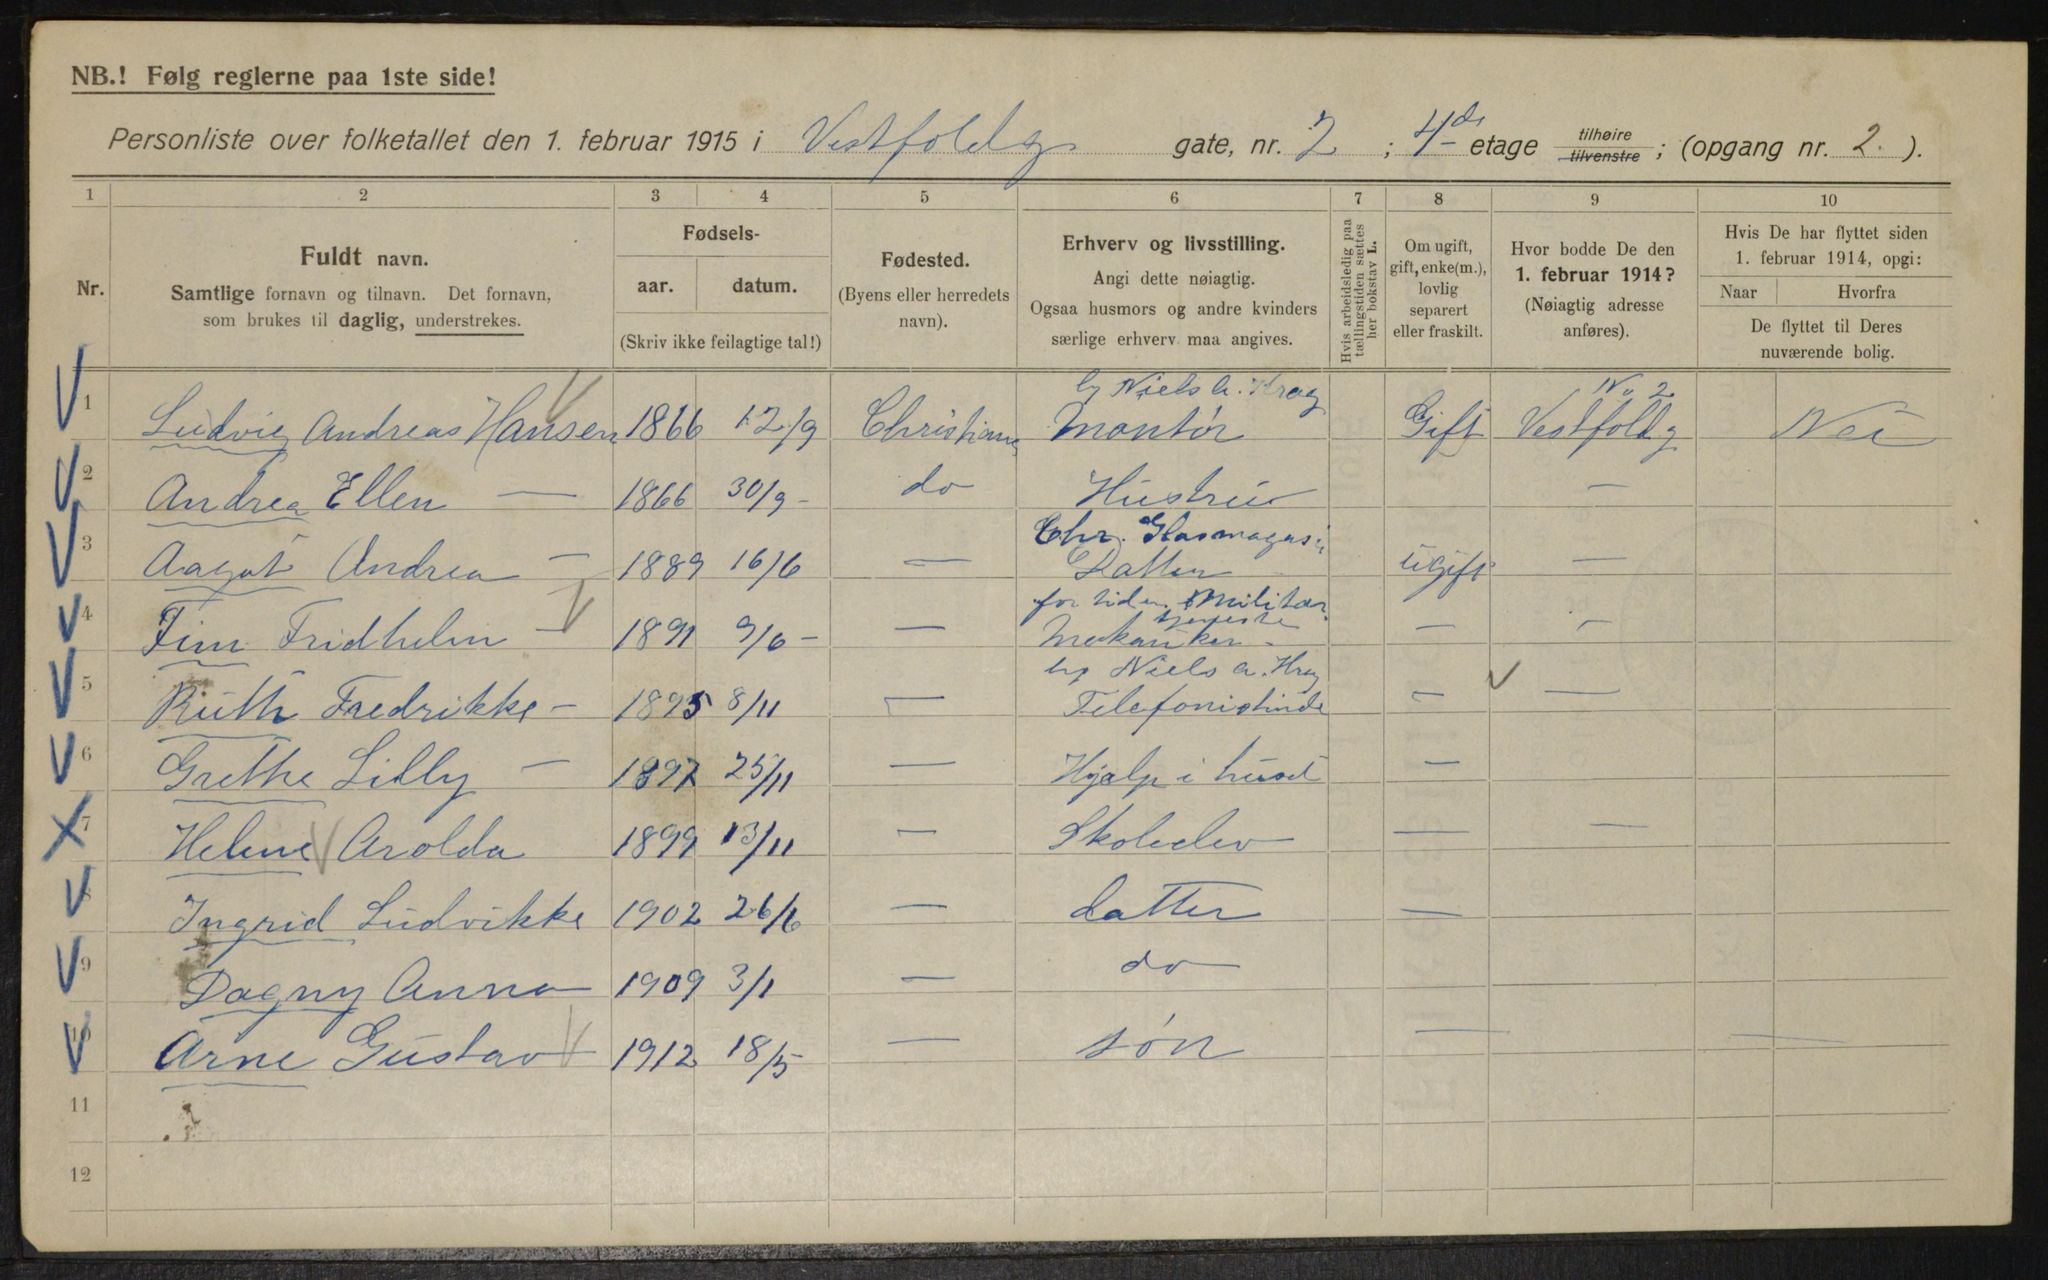 NB.! Følg reglerne paa 1ste side!
Personliste over folketallet den 1. februar 1915 i Vestfoldg gate, nr. 2 ; 4de etage tilhøire tilvenstre ; (opgang nr. 2. ).
1 2 3 4 5 6 7 8 9 10
Nr.
Fuldt navn.
Samtlige fornavn og tilnavn. Det fornavn,
som brukes til daglig, understrekes.
Fødsels-
aar. datum.
(Skriv ikke feilagtige tal!)
Fødested.
(Byens eller herredets
navn).
Erhverv og livsstilling.
Angi dette nøiagtig.
Ogsaa husmors og andre kvinders
særlige erhverv maa angives.
Hvis arbeidsledig paa
tællingstiden sættes
her bokstav L.
Om ugift,
gift, enke(m.),
lovlig
separert
eller fraskilt.
Hvor bodde De den
1. februar 1914?
(Nøiagtig adresse
anføres).
Hvis De har flyttet siden
1. februar 1914, opgi:
Naar Hvorfra
De flyttet til Deres
nuværende bolig.
Niels A. Krag No 2
1 Ludvig Andreas Hansen 1866 12/9 Christiania Montør Gift Vestfoldg Nei
2 Andrea Ellen — 1866 30/9 - do Hustru —
Chr. Glasmagasi
3 Aagot Andrea — 1889 16/6 — Datter ugift —
for tiden Militær
tjeneste
4 Fridhelm — 1891 9/6 - — Mekaniker - — —
Niels A. Krag
5 Ruth Fredrikke - 1895 8/11 — Telefonistinde — —
6 Grethe Lilly — 1897 25/11 — Hjælp i huset —
7 Helene Arolda 1899 13/11 — Skoleelev — —
8 Ingrid Ludvikke 1902 26/6 — datter —
9 Dagny Anna 1909 3/1 — do
10 Arne Gustav 1912 18/5 — søn — —
11
12